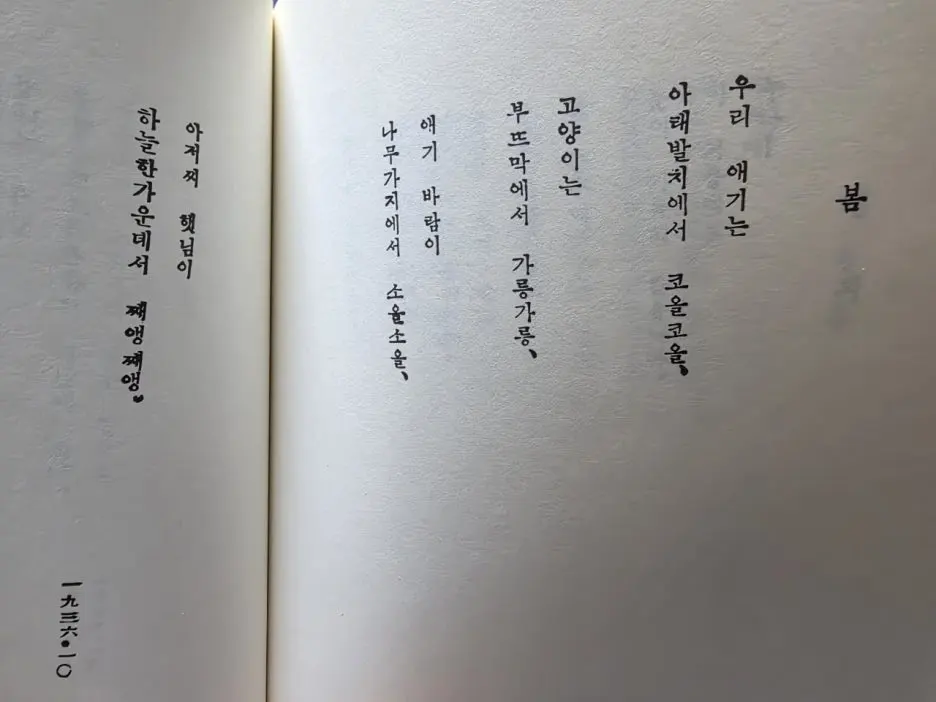 봄
우리 애기는
아래발치에서 코올코올,
고양이는
부뜨막에서 가릉가릉,
애기 바람이
나무가지에서 소올소올,
아저씨 햇님이
하늘한가운데서 째앵째앵.
一九三六•一〇